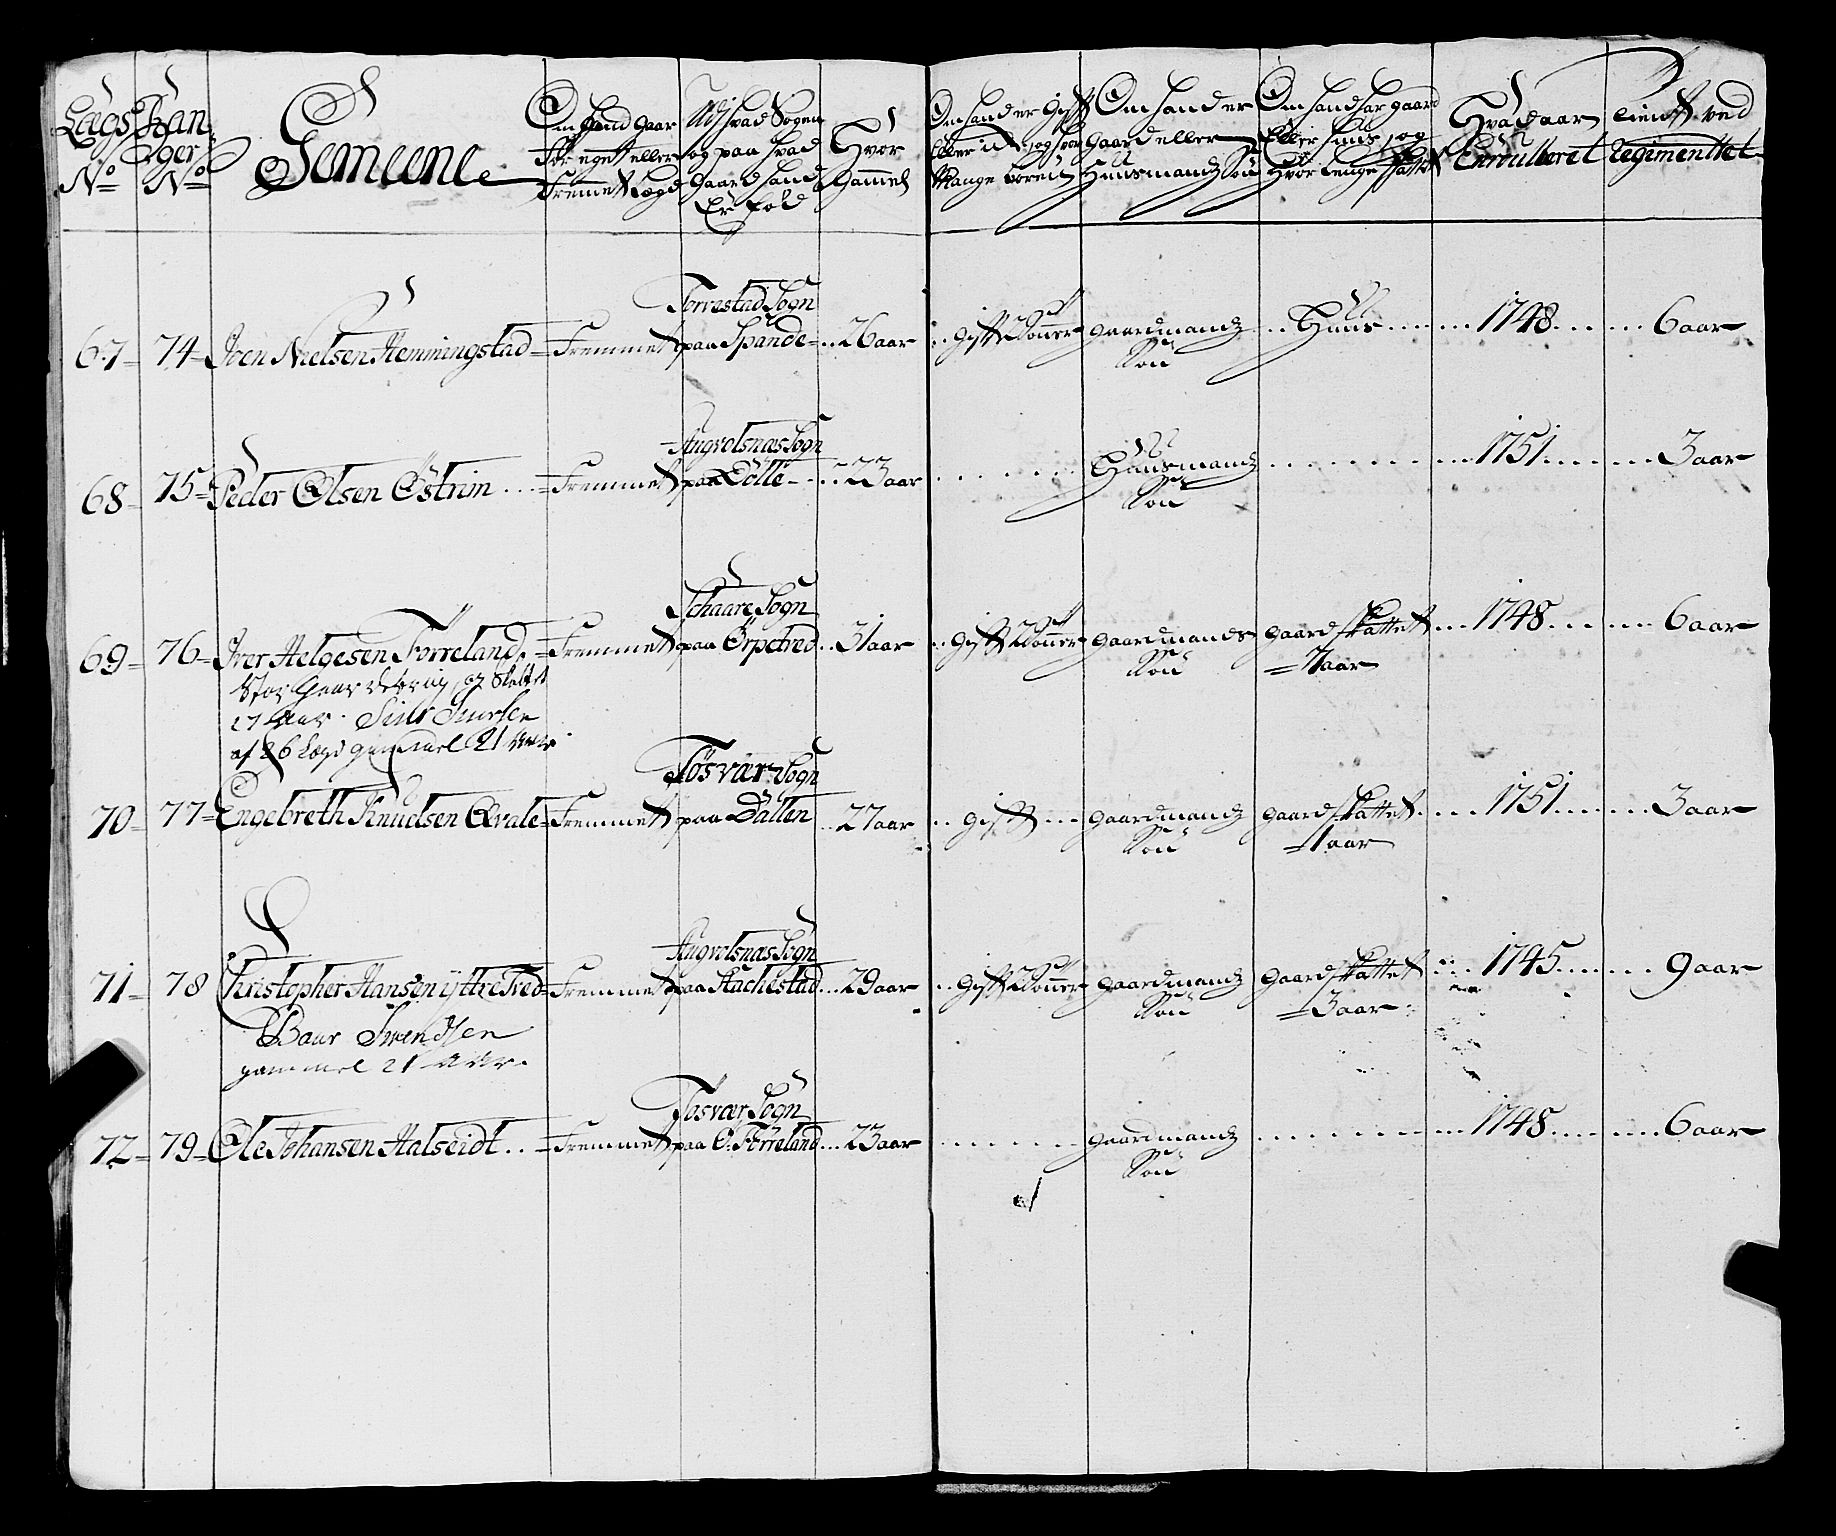 Lægs No
Ranger No
Gemeene
Om hand Gaar for eget eller fremmet Lægd
Udj hvad Sogen og paa hvad Gaard hand Er Fød
Hvor Gammel
Om hand er Gift eller og hvor Mange børen
Om hand er Gaard eller Huusmands Søn
Om hand har gaard Eller huus og Hvor Lenge
Hvad aar Enroulleret
tient ved Regimenttet
67 74 Joen Nielsen Hemmingstad Fremmet Torvestad Sogn paa Spande 26 aar Gift gaardmands Søn Huus 1748 6 aar
68 75 Peder Olsen Østrim Fremmet Augvolsnæs Sogn paa Dölle 23 aar Huusmands Søn 1751 3 aar
69 76 Iver Helgesen Förreland Fremmet Schaare Sogn paa Örpetved 31 aar Gift gaardmands Søn gaard skattet 7 aar 1748 6 aar
27 aar
af 26 Lægd gammel 21 aar
70 77 Engebreth Knudsen Qvale Fremmet Tösvær Sogn paa Dallen 27 aar gift gaardmands Søn gaard skattet 1 aar 1751 3 aar
71 78 Christopher Hansen yttre Tved Fremmet Augvolsnæs Sogn paa Hachestad 29 aar Gift gaardmands Søn gaard skattet 3 aar 1745 9 aar
Baar Svendsen
gammel 21 aar
72 79 Ole Johansen Halseidt Fremmet Tösvær Sogn paa Ö: Förreland 23 aar gaardmands Søn 1748 6 aar